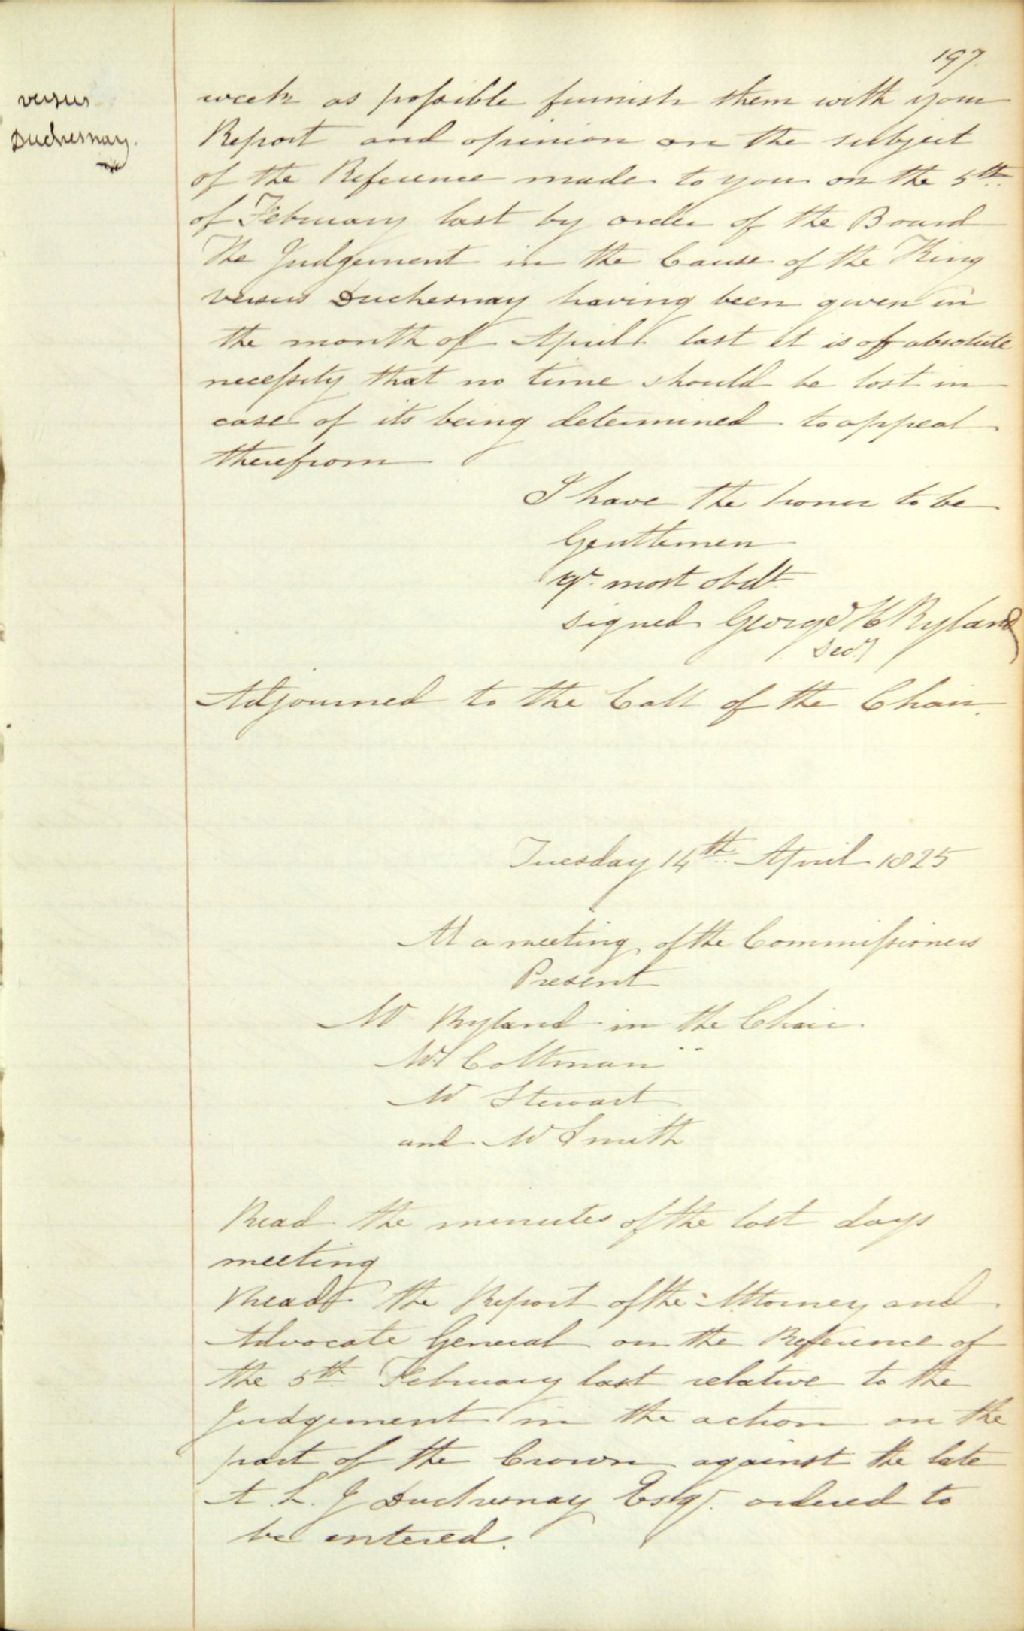 197.
versus
Duchesnay.
week as possible furnish them with your
Report and opinion on the subject
of the Reference made to you on the 5th
of February last by order of the Board
The Judgement in the Cause of the King
versus Duchesnay having been given in
the month of April last it is of absolute
necessity that no time should be lost in
case of its being determined to appeal
therefrom
I have the honor to be
Gentlemen
yr. most obdt.
signed George H Ryland
Secy
Adjourned to the Call of the Chair.
Tuesday 14th April 1825
At a meeting of the Commissioners
Present
Mr Ryland in the Chair
Mr Coltman
Mr Stewart
and Mr Smith
Read the minutes of the last days
meeting
Read the Report of the Attorney and
Advocate General on the Reference of
the 5th February last relative to the
Judgement in the action on the
part of the Crown against the late
A. L. J Duchesnay Esqr. ordered to
be entered.